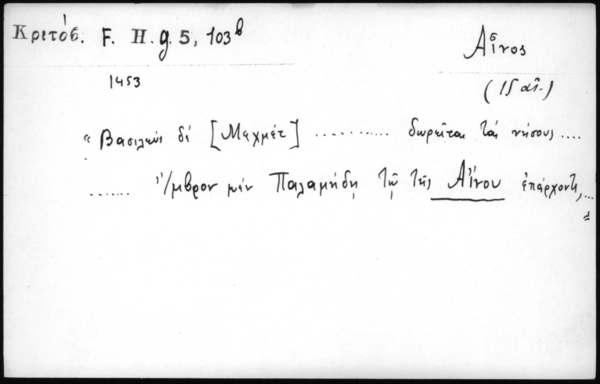 Κριτόβ. F. H. g. 5, 103b
Αἶνος
1453
(15 αἰ.)
"Βασιλεὺς δέ [Μεχμέτ] ............ δωρεῖται τὰς νήσους ....
...... Ἴμβρον μὲν Παλαμήδῃ τῷ τῆς Αἴνου ἐπάρχοντι,...
"